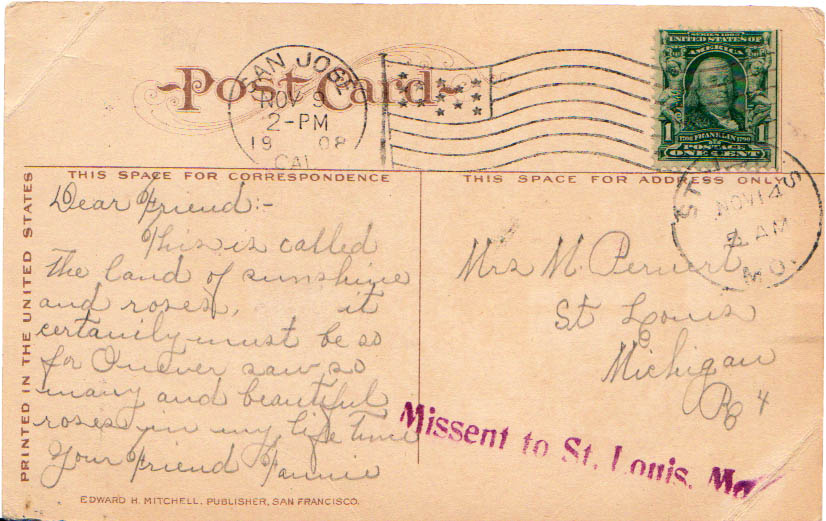 Post Card
SAN JOSE
NOV 9
2-PM
1908
CAL
SERIES 1902
UNITED STATES OF
AMERICA
1 1
1706 FRANKLIN 1790
POSTAGE
ONE CENT
THIS SPACE FOR CORRESPONDENCE
THIS SPACE FOR ADDRESS ONLY
PRINTED IN THE UNITED STATES
Dear Friend:-
This is called
the land of sunshine
and roses, it
certainily must be so
for I never saw so
many and beautiful
roses in my life time
Your Friend Fannie
NOV 14
AM
MO.
Mrs M.
St Louis
Michigan
4
Missent to St. Louis, Mo
EDWARD H. MITCHELL, PUBLISHER, SAN FRANCISCO.